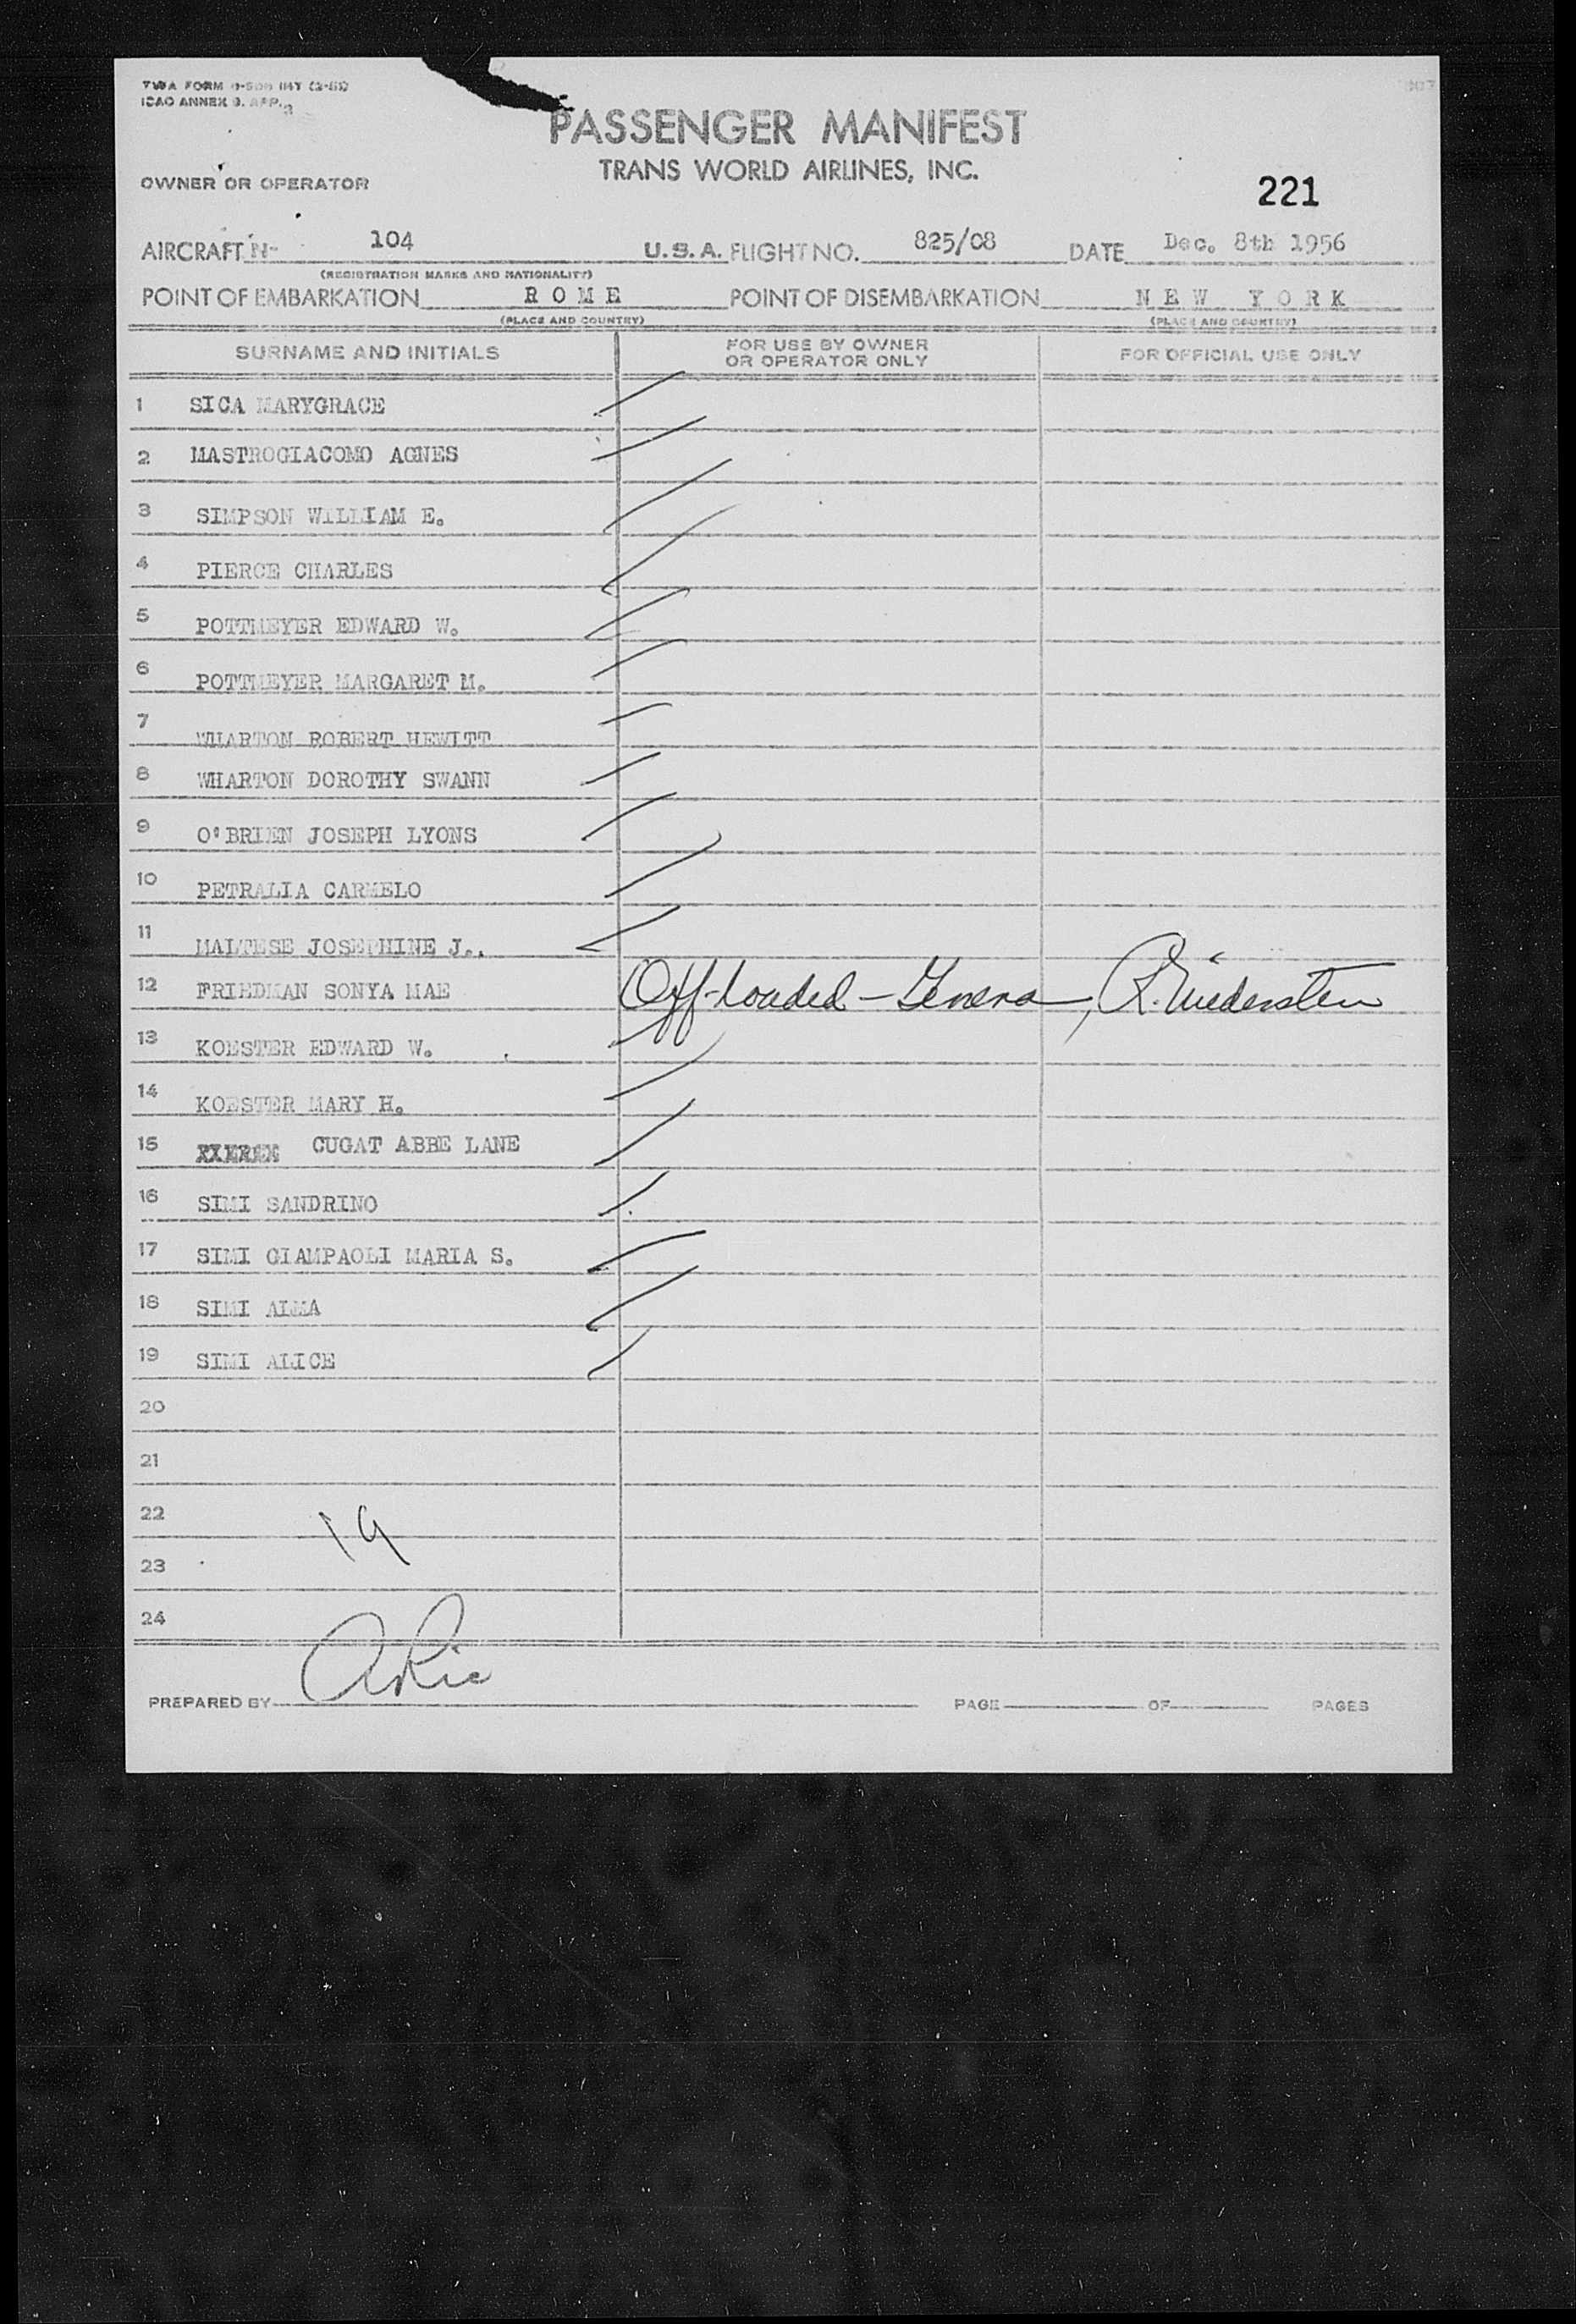 ICAO ANNEX 9. APP. 3
PASSENGER MANIFEST
TRANS WORLD AIRLINES, INC.
OWNER OR OPERATOR
221
AIRCRAFT N- 104 U.S.A. FLIGHT NO. 825/08 DATE Dec. 8th 1956
(REGISTRATION MARKS AND NATIONALITY)
POINT OF EMBARKATION ROME POINT OF DISEMBARKATION NEW YORK
(PLACE AND COUNTRY) (PLACE AND COUNTRY)
SURNAME AND INITIALS FOR USE BY OWNER OR OPERATOR ONLY FOR OFFICIAL USE ONLY
1 SICA MARYGRACE
2 MASTROGIACOMO AGNES
3 SIMPSON WILLIAM E.
4 PIERCE CHARLES
5 POTTMEYER EDWARD W.
6 POTTMEYER MARGARET M.
7 WHARTON ROBERT HEWITT
8 WHARTON DOROTHY SWANN
9 O'BRIEN JOSEPH LYONS
10 PETRALIA CARMELO
11 MALTESE JOSEPHINE J..
12 FRIEDMAN SONYA MAE Off-loaded - Geneva,
13 KOESTER EDWARD W.
14 KOESTER MARY H.
15 CUGAT ABBE LANE
16 SIMI SANDRINO
17 SIMI GIAMPAOLI MARIA S.
18 SIMI ALMA
19 SIMI ALICE
20
21
22 19
23
24
PREPARED BY PAGE OF PAGES